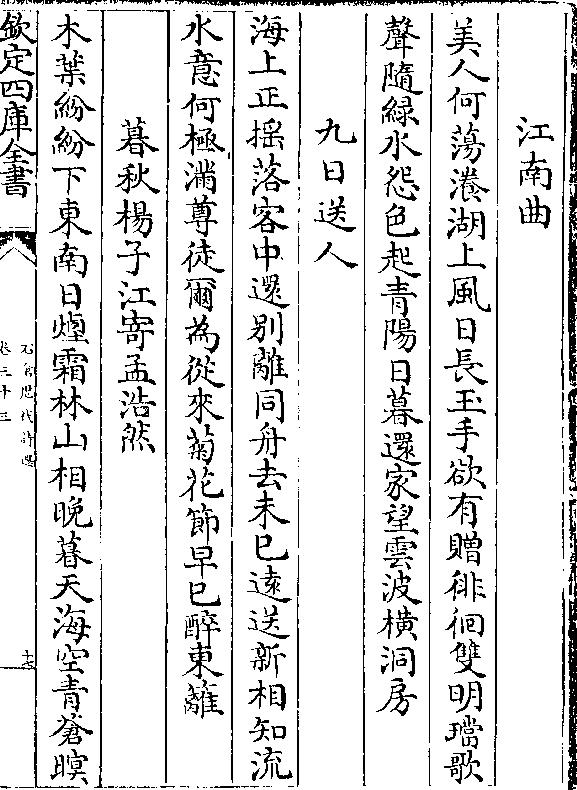 江南曲
美人何蕩瀁湖上風日長玉手欲有贈徘徊雙明璫歌
聲隨緑水怨色起青陽日暮還家望雲波横洞房
九日送人
海上正揺落客中還别離同舟去未已遠送新相知流
水意何極滿尊徒爾為從來菊花節早已醉東籬
暮秋楊子江寄孟浩然
木葉紛紛下東南日煙霜林山相晚暮天海空青蒼暝
欽定四庫全書
石倉歴代詩選
卷三十三